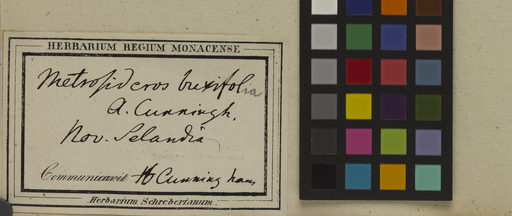 HERBARIUM REGIUM MONACENSE
Metrosideros buxifolia
A. Cunningh,
Nov. Selandia
Communicavit Cunningham
Herbarium Schreberianum.